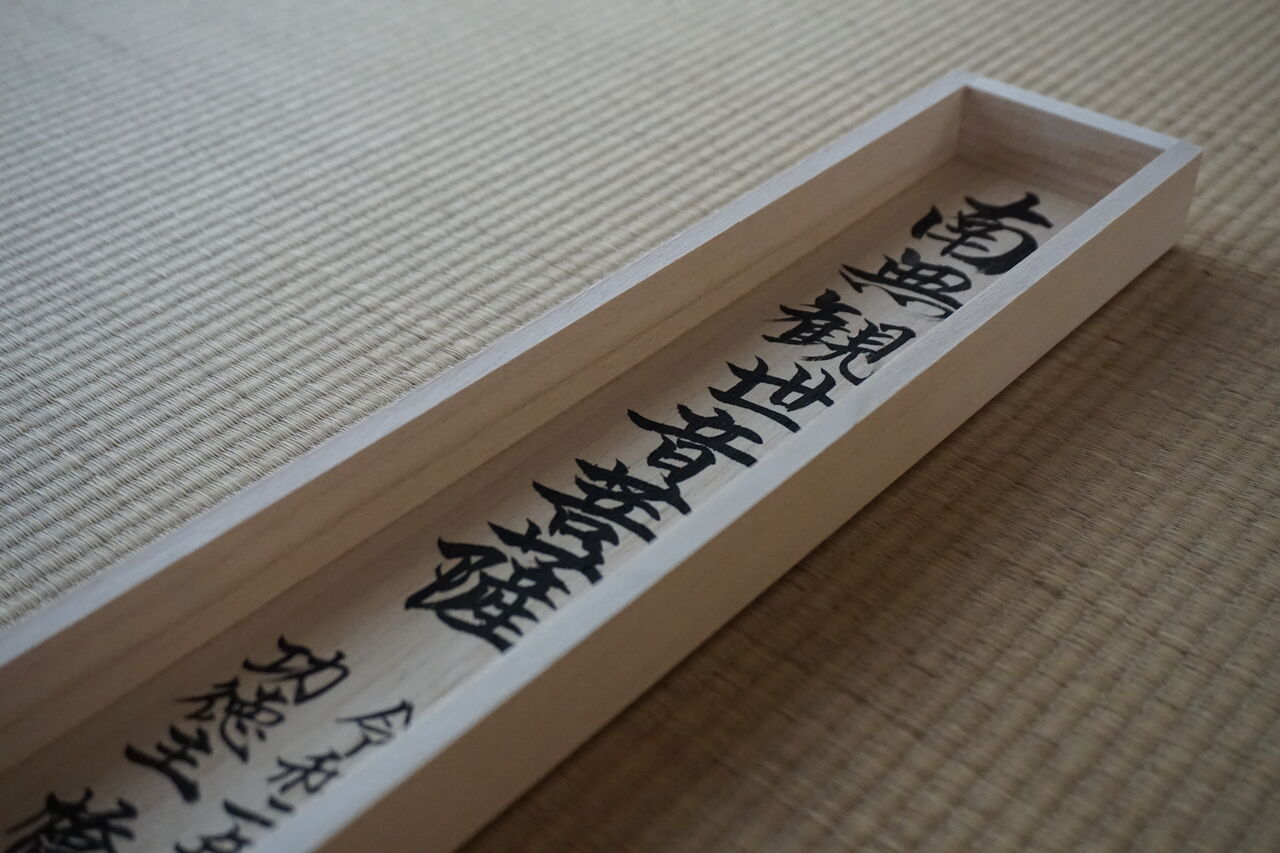 南無観世音菩薩
令和二年
功徳主